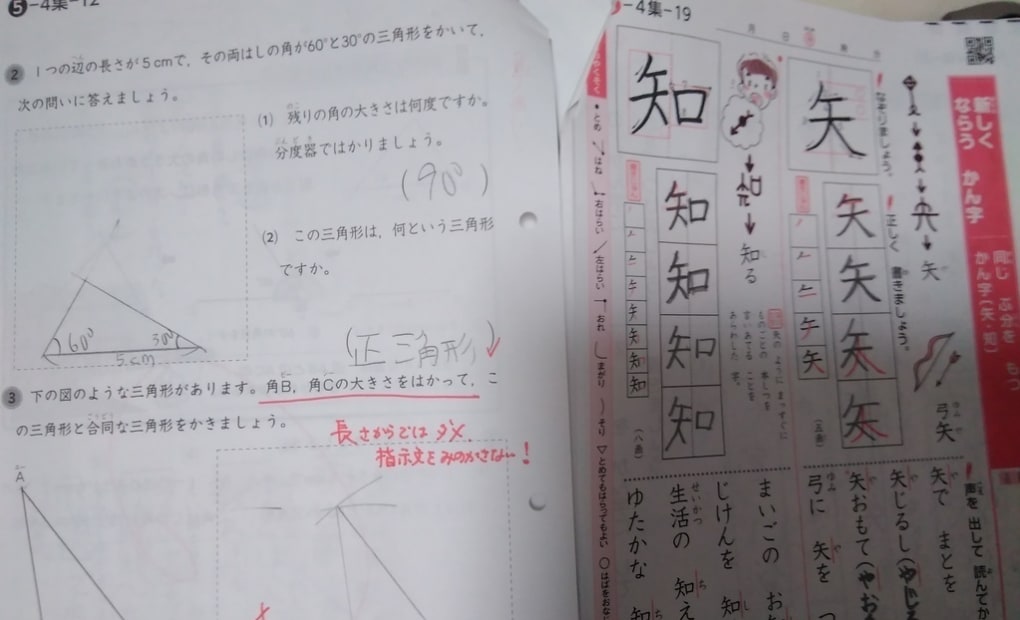 ❺-4集-12
❷ 1つの辺の長さが5cmで，その両はしの角が60°と30°の三角形をかいて，
次の問いに答えましょう。
(1) 残りの角の大きさは何度ですか。
分度器ではかりましょう。
(90°)
(2) この三角形は，何という三角形
ですか。
(正三角形)
60°
30°
5cm
❸ 下の図のような三角形があります。角B，角Cの大きさをはかって，こ
の三角形と合同な三角形をかきましょう。
長さからではダメ
指示文をみのがさない！
A
-4集-19
月 日
新しく
ならう かん字
同じ ぶ分を もつ
かん字(矢・知)
矢
弓矢
なぞりましょう。
正しく 書きましょう。
矢
矢
矢
矢
矢
矢
知る
矢の ように まっすぐに
ものごとの 本しつを
言いあてる ことを
あらわした 字。
知
知
知
知
知
知
知
知
・とめ はね 右はらい 左はらい おれ まがり そり ▽とめてもはらってもよい
声を 出して 読んでか
矢で まとを
矢じるし(やじる
矢おもて(やお
弓に 矢を つ
まいごの お
じけんを 知
生活の 知え
ゆたかな 知